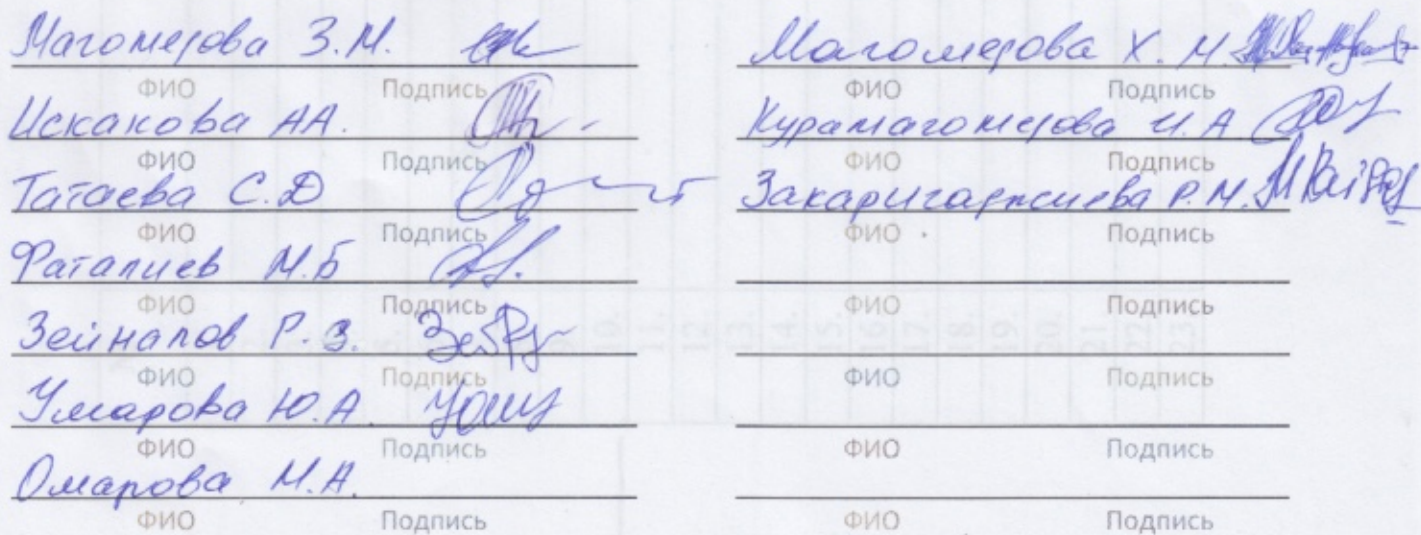 Магомедова З.М.
ФИО Подпись
Исканова А.А.
ФИО Подпись
Татаева С.Д
ФИО Подпись
Фаталиев М.Б
ФИО Подпись
Зейналов Р.З.
ФИО Подпись
Умарова Ю.А
ФИО Подпись
Омарова М.А.
ФИО Подпись
Магомедова Х.М.
ФИО Подпись
Курамагомедова И.А
ФИО Подпись
Закаригаджиева Р.М.
ФИО Подпись
ФИО Подпись
ФИО Подпись
ФИО Подпись
ФИО Подпись
10.
11.
12
13.
14.
15.
16
17.
18.
19.
20.
21
22
23